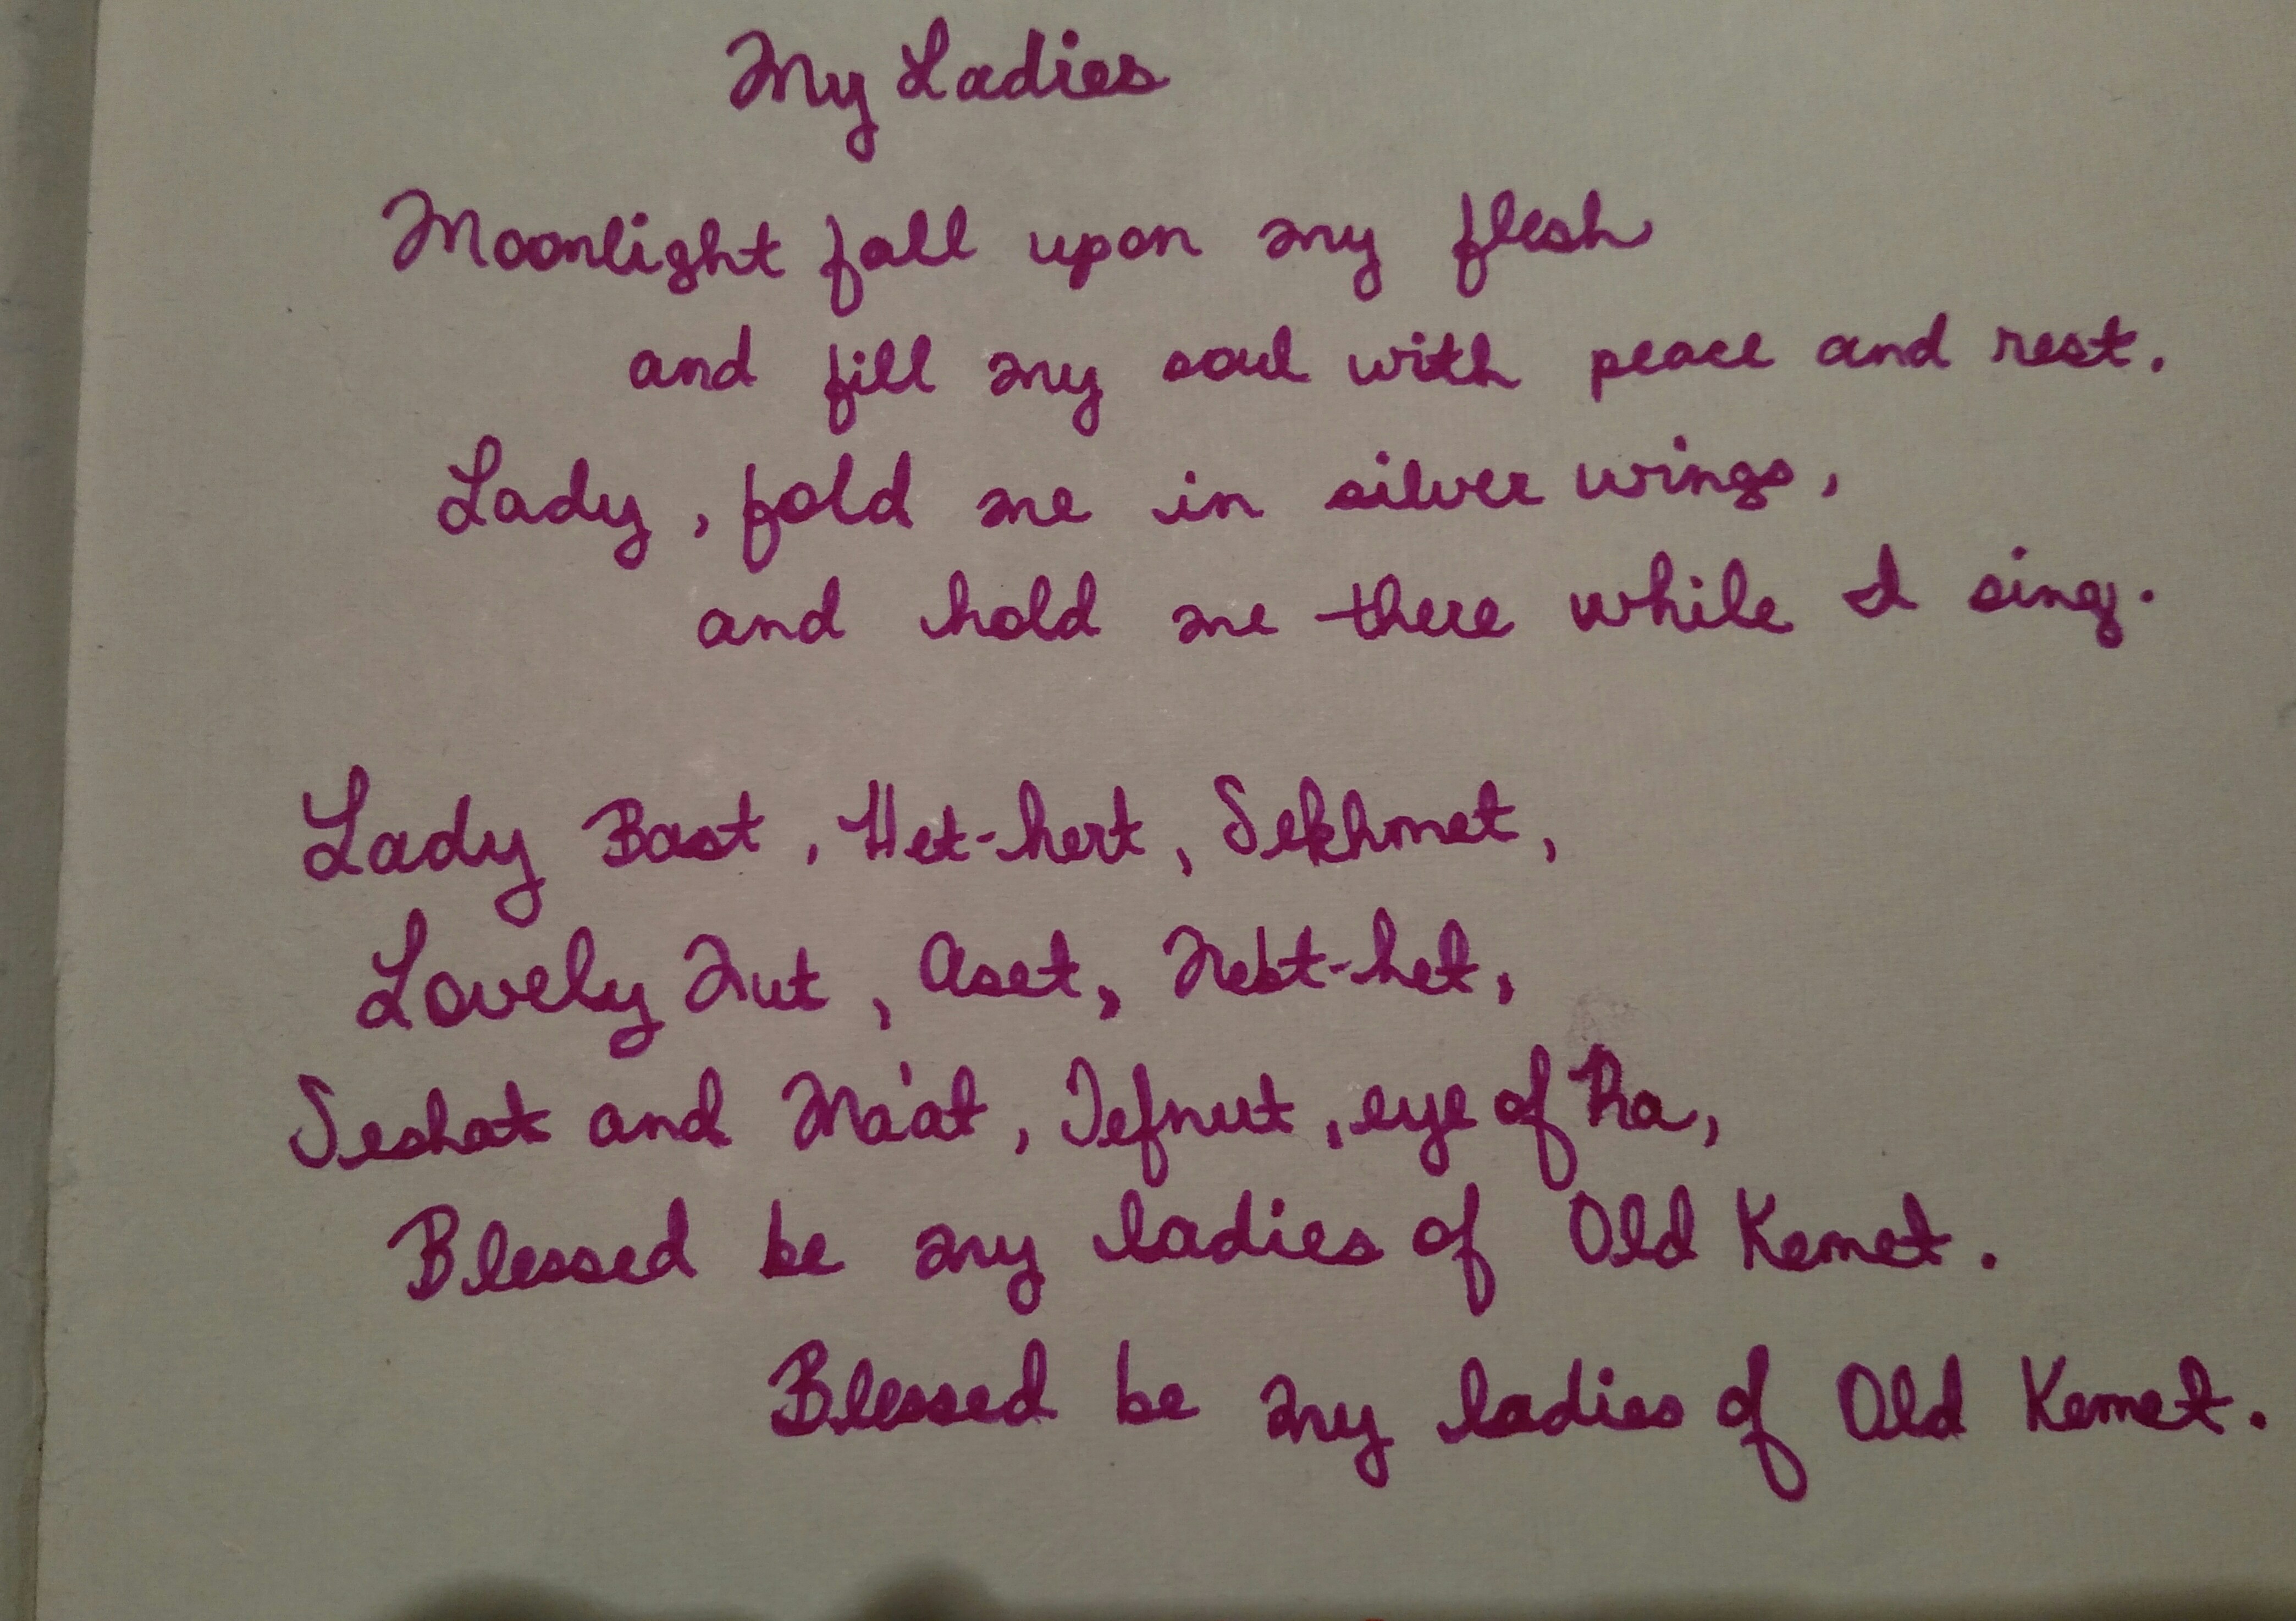 My Ladies
Moonlight fall upon my flesh
and fill my soul with peace and rest.
Lady, fold me in silver wings,
and hold me there while I sing.
Lady Bast, Het-hert, Sekhmet,
Lovely Nut, Aset, Nebt-het,
Seshat and Ma'at, Tefnut, eye of Ra,
Blessed be my ladies of Old Kemet.
Blessed be my ladies of Old Kemet.